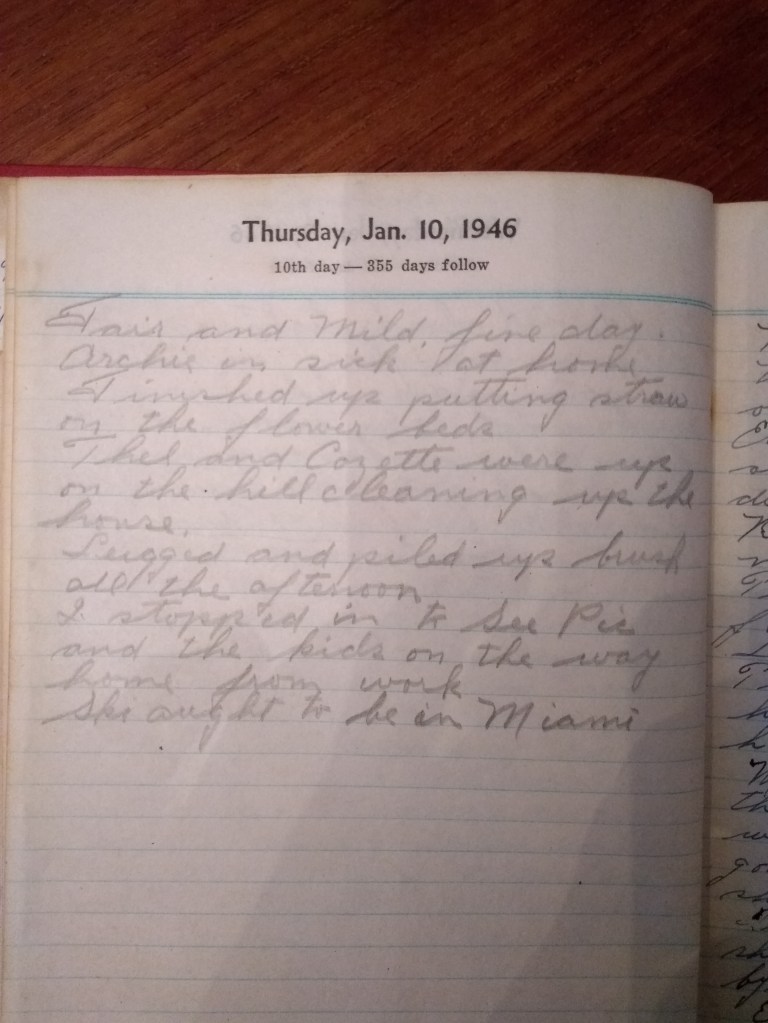 Thursday, Jan. 10, 1946
10th day — 355 days follow
Fair and Mild, fine day.
Archie in sick at home
Finished up putting straw
on the flower beds
Thel and Cozette were up
on the hill cleaning up the
house.
Lugged and piled up brush
all the afternoon
I stopped in to See Pic
and the kids on the way
home from work
Ski aught to be in Miami